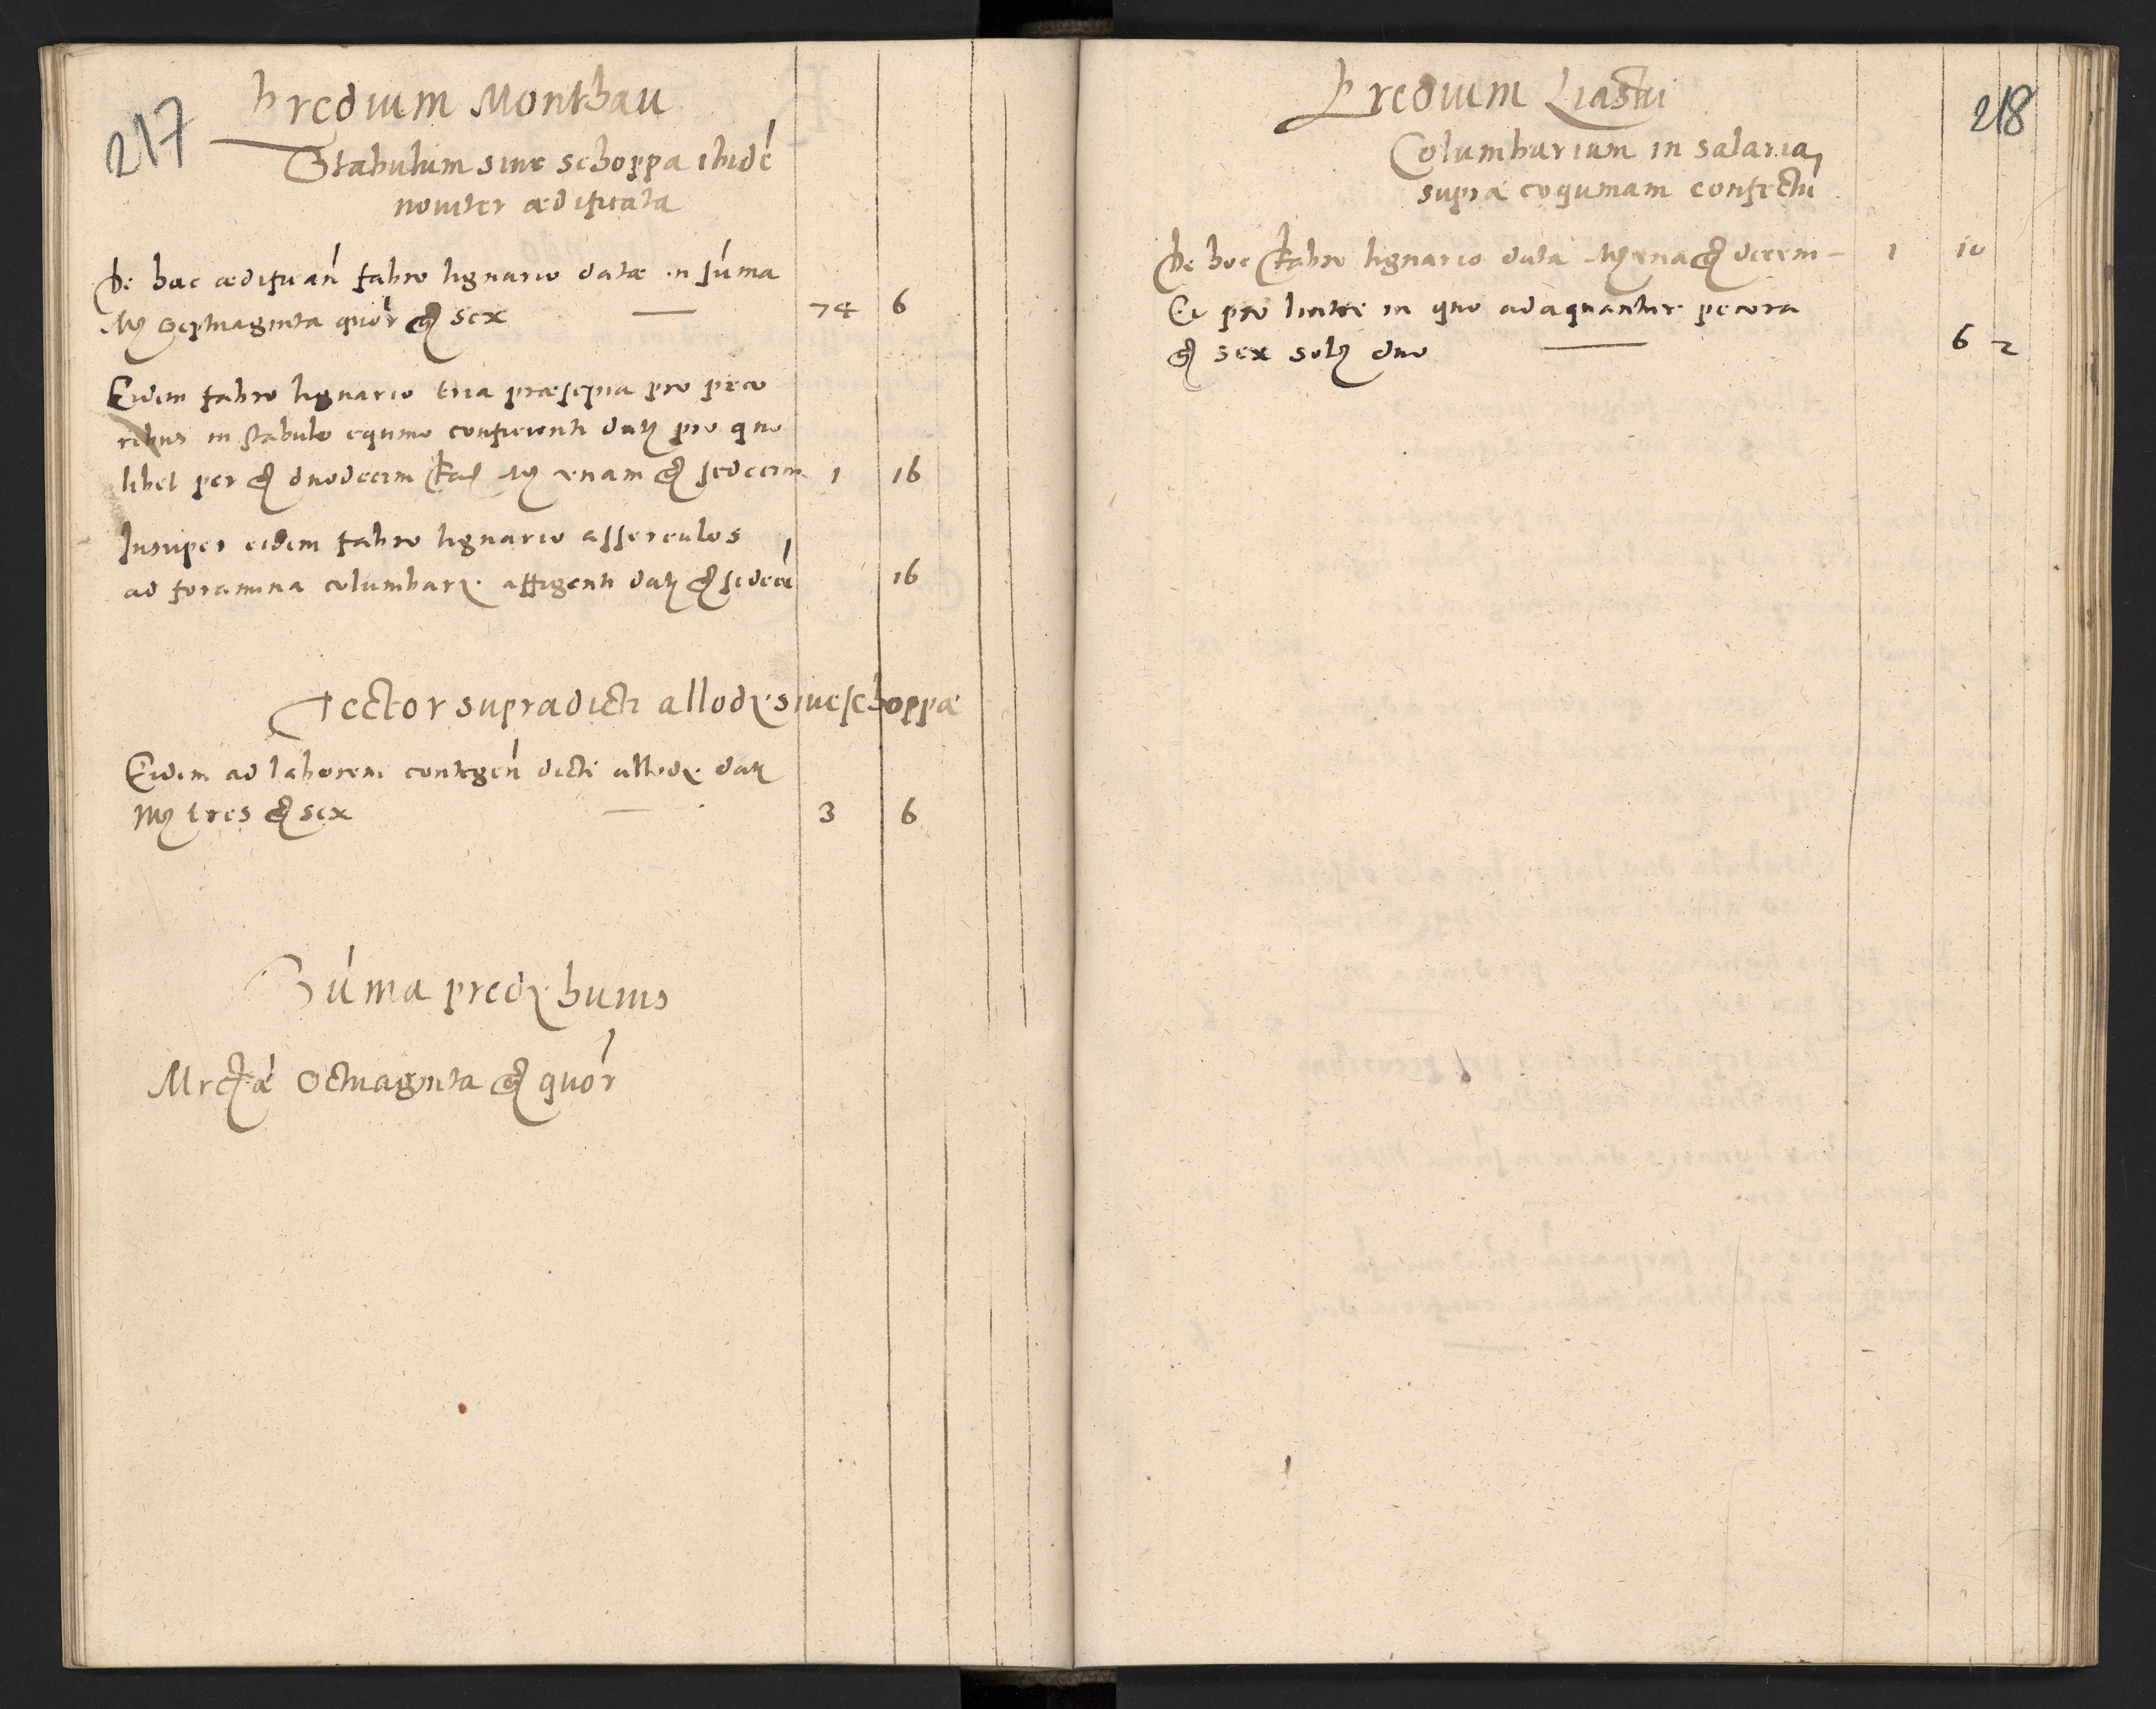 217
Predium Monthau
Stabulum siue schoppa ibidē
nouiter ædificata
De hac ædifican̄ fabro lignario datæ in sūma
Mr septuaginta quōr gr sex — 74 6
Eidem fabro lignario tria præsepia pro peco
ribus in stabulo equino conficienti datꝫ pro quo
libet per gr duodecim fac Mr vnam gr sedecim 1 16
Insuper eidem fabro lignario assereulos
ad foramina columbarꝫ affigenti datꝫ gr sedecī 16
Tector supradicti allodꝫ siue schoppæ
Eidem ad laborem contegen̄ dicti allodꝫ datꝫ
Mr tres gr sex — 3 6
Sūma predꝫ huius
Mrcæ Octuaginta gr quōr
218
Predium Liastui
Columbarium in salaria
supra coquinam confectū
De hoc fabro lignario data Mr vna gr decem – 1 10
Et pro lintre in quo adaquantur pecora
gr sex solꝫ duo — 6 2